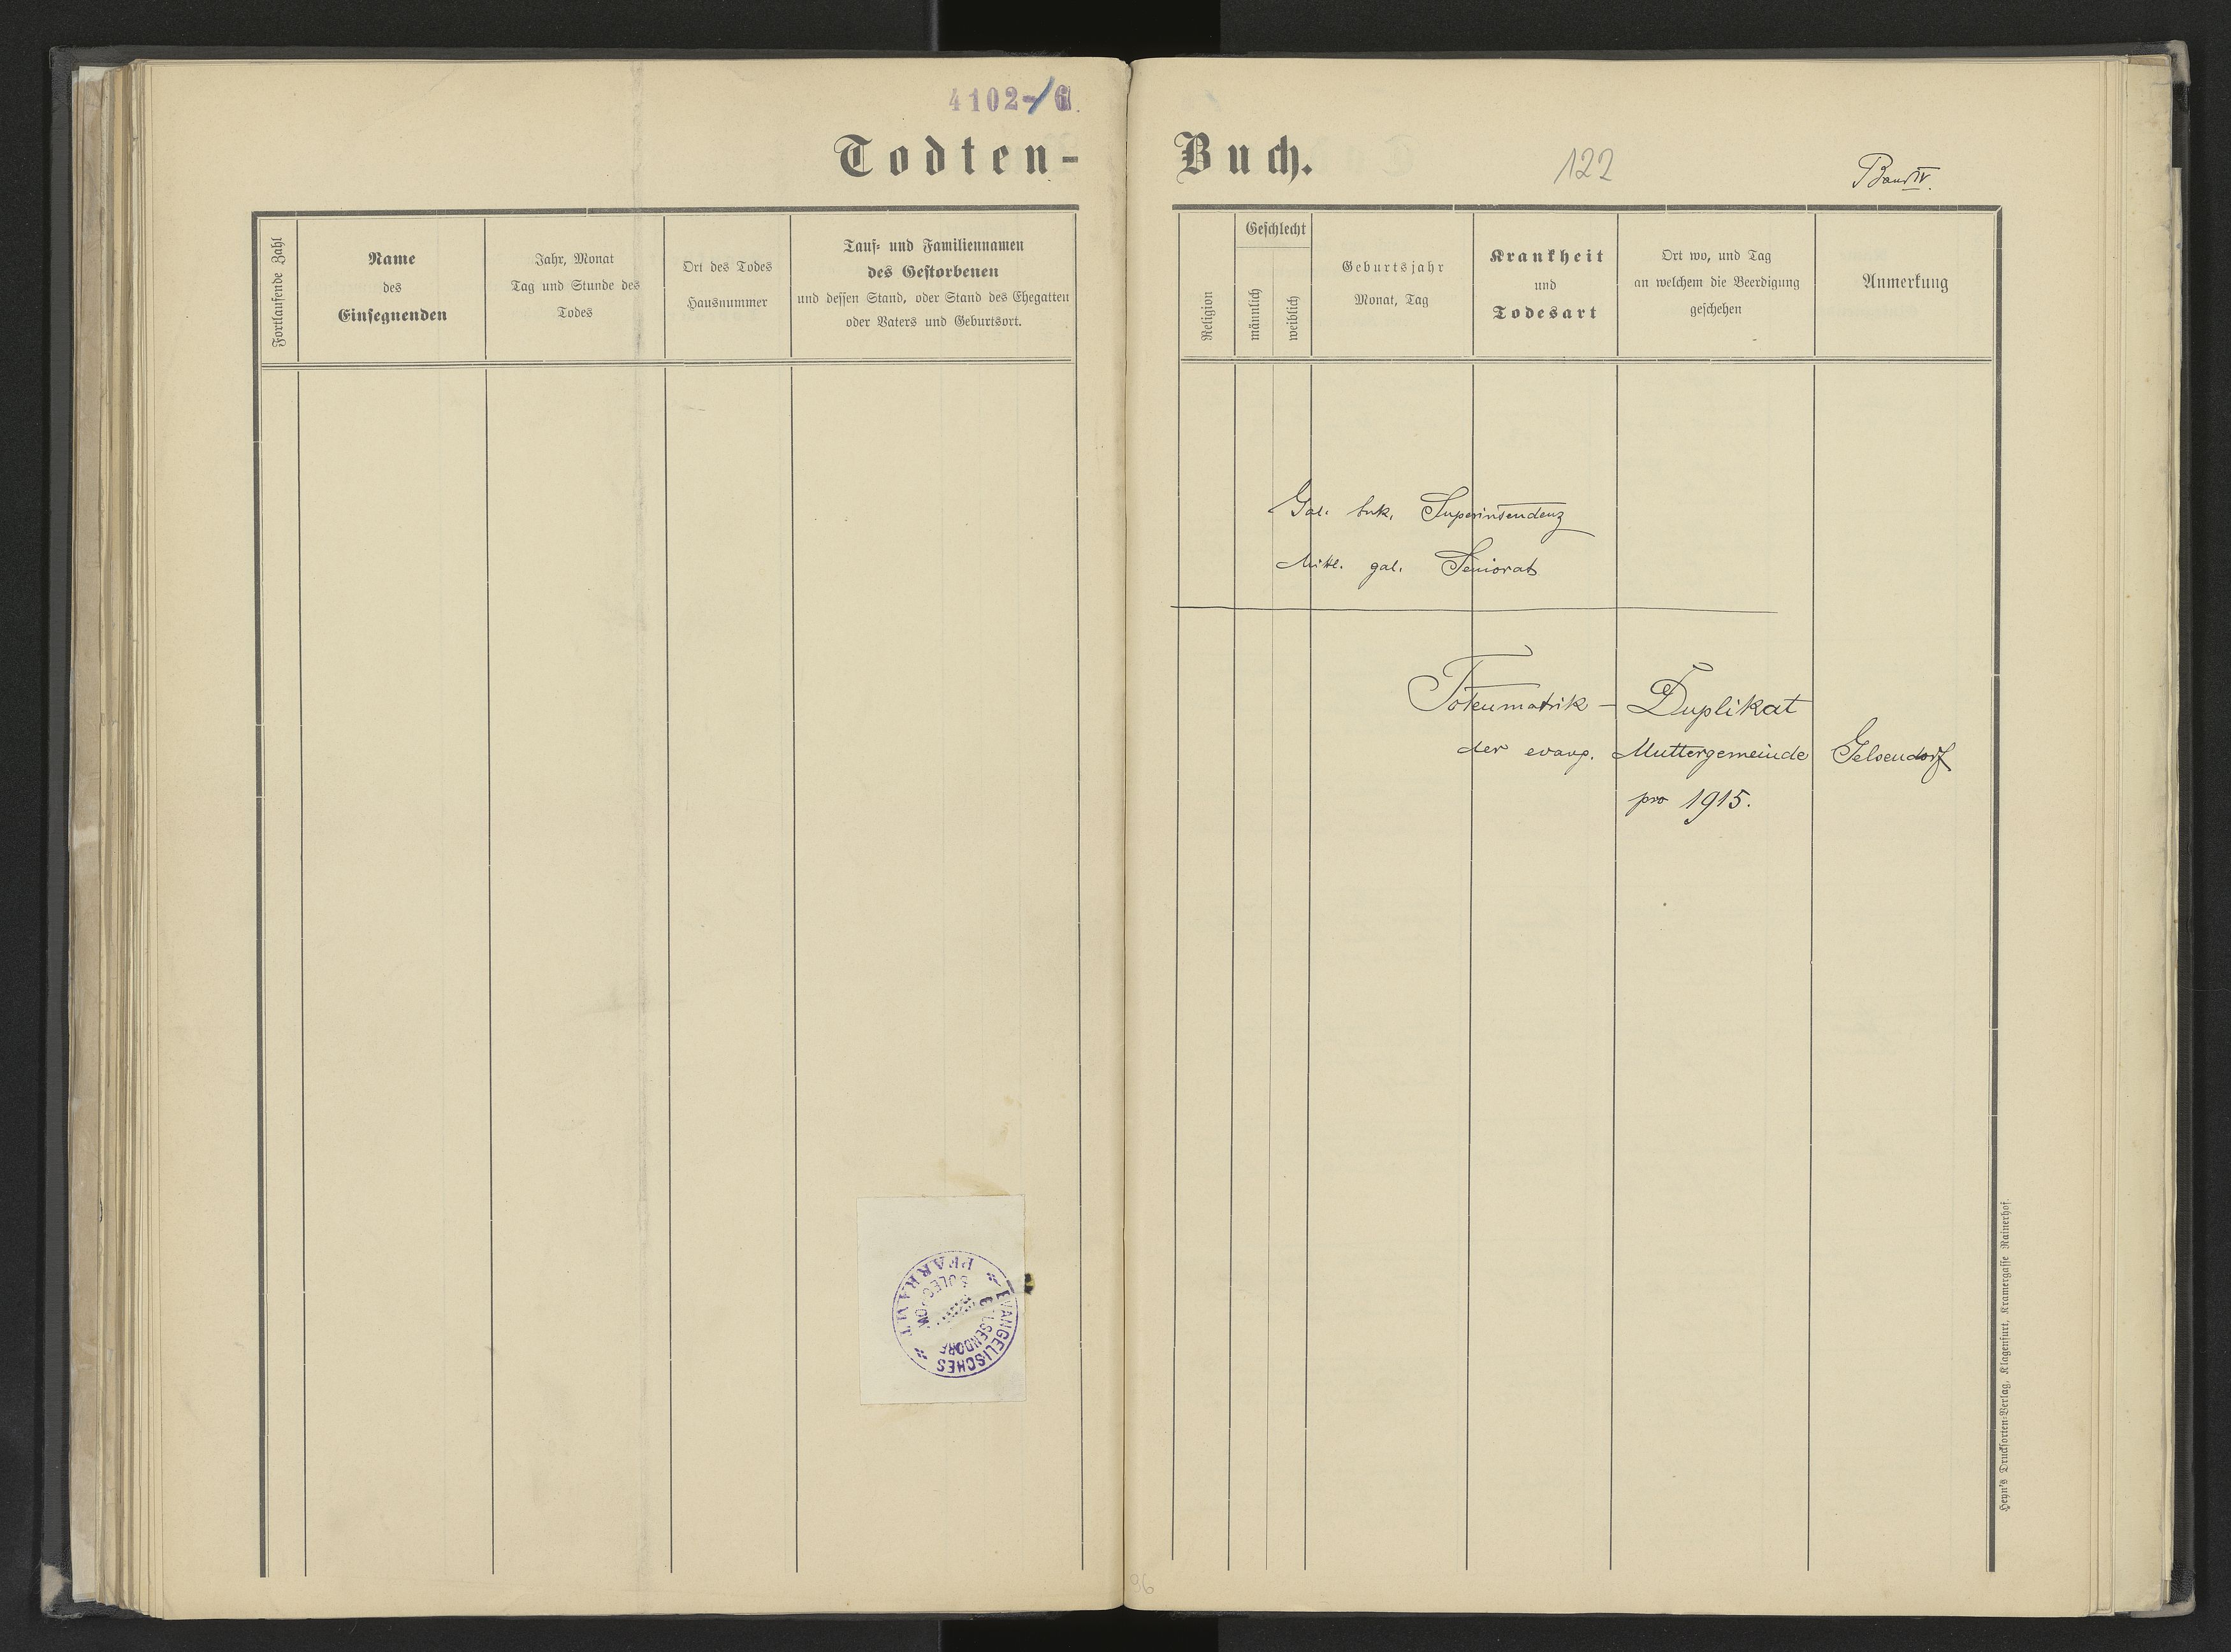 4102-/6
Todten-
Fortlaufende Zahl
Name
des
Einsegnenden
Jahr, Monat
Tag und Stunde des
Todes
Ort des Todes
Hausnummer
Tauf- und Familiennamen
des Gestorbenen
und dessen Stand, oder Stand des Ehegatten
oder Vaters und Geburtsort.
EVANGELISCHES
PFARRAMT
Buch.
122
Band IV.
Religion
Geschlecht
männlich
weiblich
Geburtsjahr
Monat, Tag
Krankheit
und
Todesart
Ort wo, und Tag
an welchem die Beerdigung
geschehen
Anmerkung
Gal. buk. Superintendenz
Mittl. gal. Seniorat
Totenmatrik - Duplikat
der evang. Muttergemeinde Gelsendorf
pro 1915.
Heyn's Drucksorten-Verlag, Klagenfurt, Kramergasse Rainerhof.
96